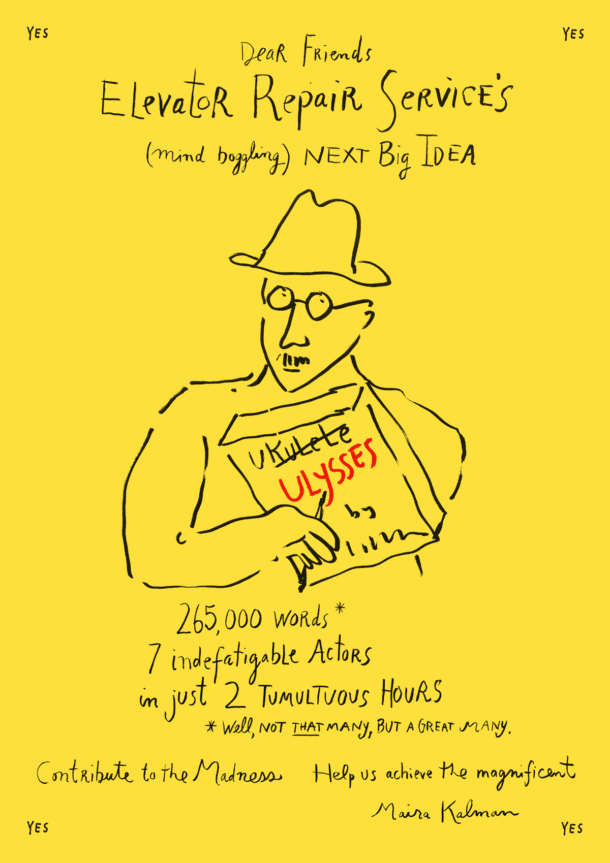 YES YES
Dear Friends
Elevator Repair Service's
(mind boggling) NEXT Big IDEA
UKULELE
ULYSSES
by
265,000 words*
7 indefatigable Actors
in just 2 TUMULTUOUS HOURS
* Well, NOT THAT MANY, BUT A GREAT MANY.
Contribute to the Madness Help us achieve the magnificent
Maira Kalman
YES YES